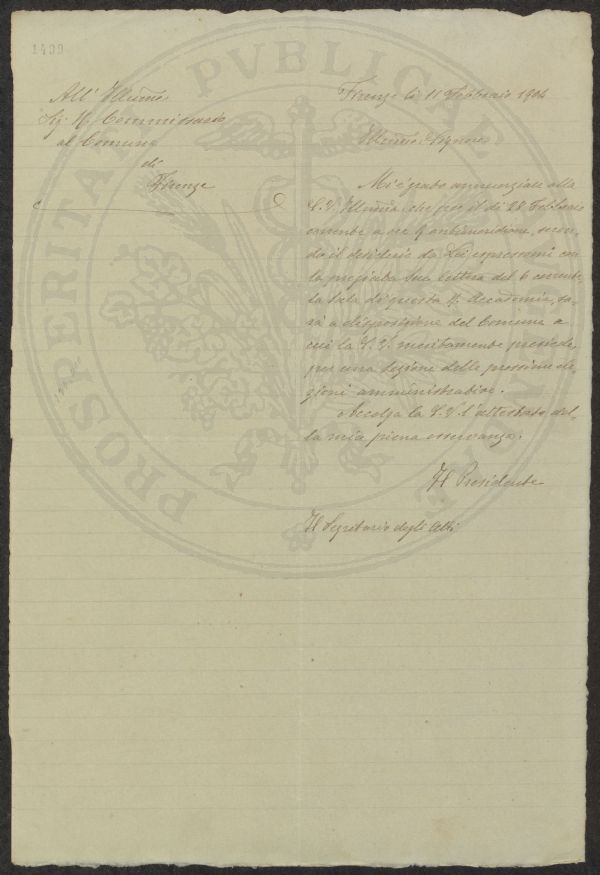 1499
All' Illumo
Sig. R. Commissario
al Comune
di
Firenze
Firenze li 11 Febbraio 1904
Illumo Signore
Mi è grato annunziale alla
S. V. Illuma che per il dì 28 Febbraio
corrente a ore 9 antimeridiane, secon-
do il desiderio da Lei espressomi con
la pregiata Sua lettera del 6 corrente,
la sala di questa R. Accademia, sa-
rà a disposizione del Comune a
cui la S. V. meritamente presiede,
per una Sezione delle prossime ele-
zioni amministrative.
Accolga la S. V. l'attestato del-
la mia piena osservanza.
Il Presidente
Il Segretario degli Atti
PROSPERITATI PVBLICAE